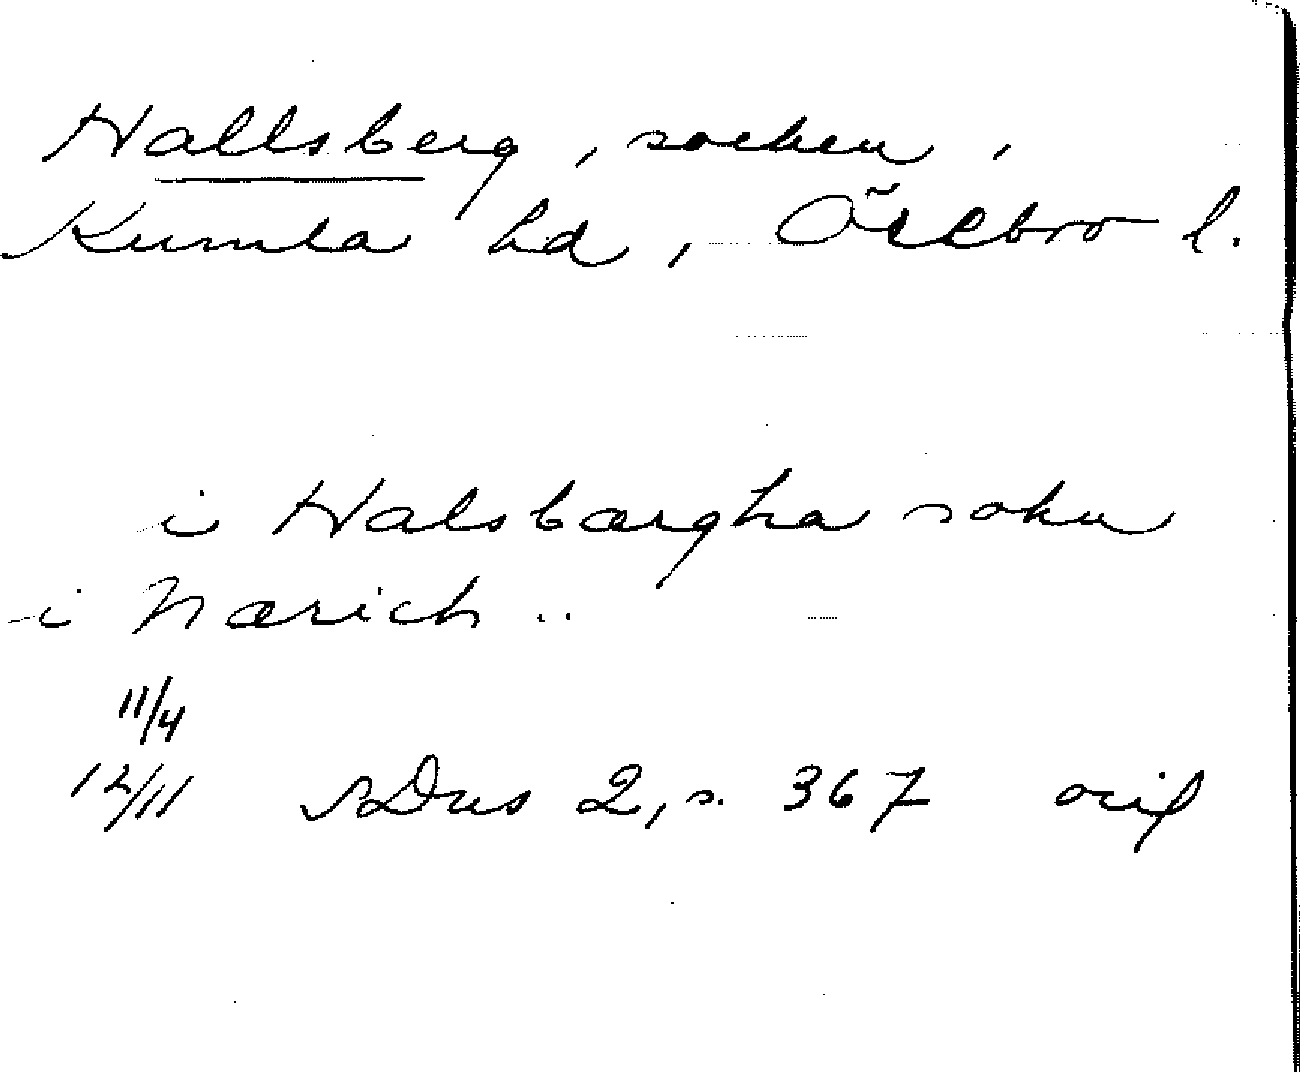 Hallsberg, socken,
Kumla hd, Örebro l.
i Halsbærgha sokn
i Nærich ..
11/4
12/11 SDns 2, s. 367 orig